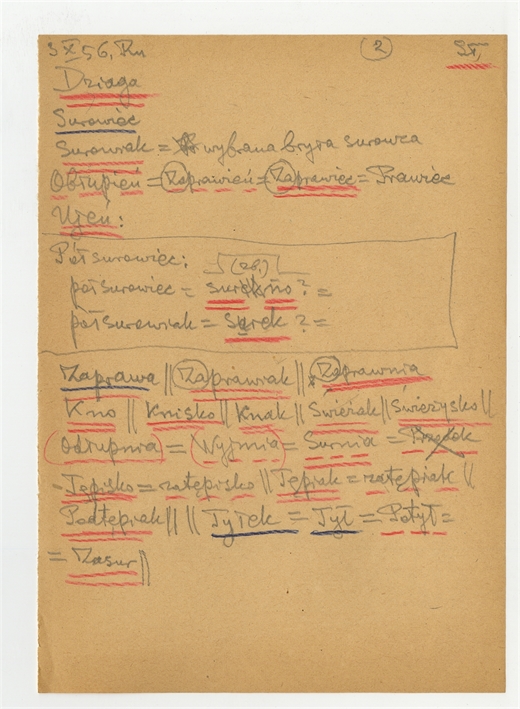 3 X 56, Ku (2) SK,
Dziaga
Surowiec
Surowiak = wybrana bryła surowca
Obłupień = Zaprawień = Zaprawiec = Prawiec
Ujeń:
Pół surowiec: (zb.)
pół surowiec = surekno? =
pół surowiak = Surek? =
Zaprawa || Zaprawiak || Zaprawnia
Kno || Knisko || Knak || Świeżak || Świeżysko ||
(Odłupnia) = (Wyjmia) = Surnia =
- Tępisko = zatępisko || Tępiak = zatępiak ||
Podtępiak || || Tylek = Tył = Potył =
= Zasur ||